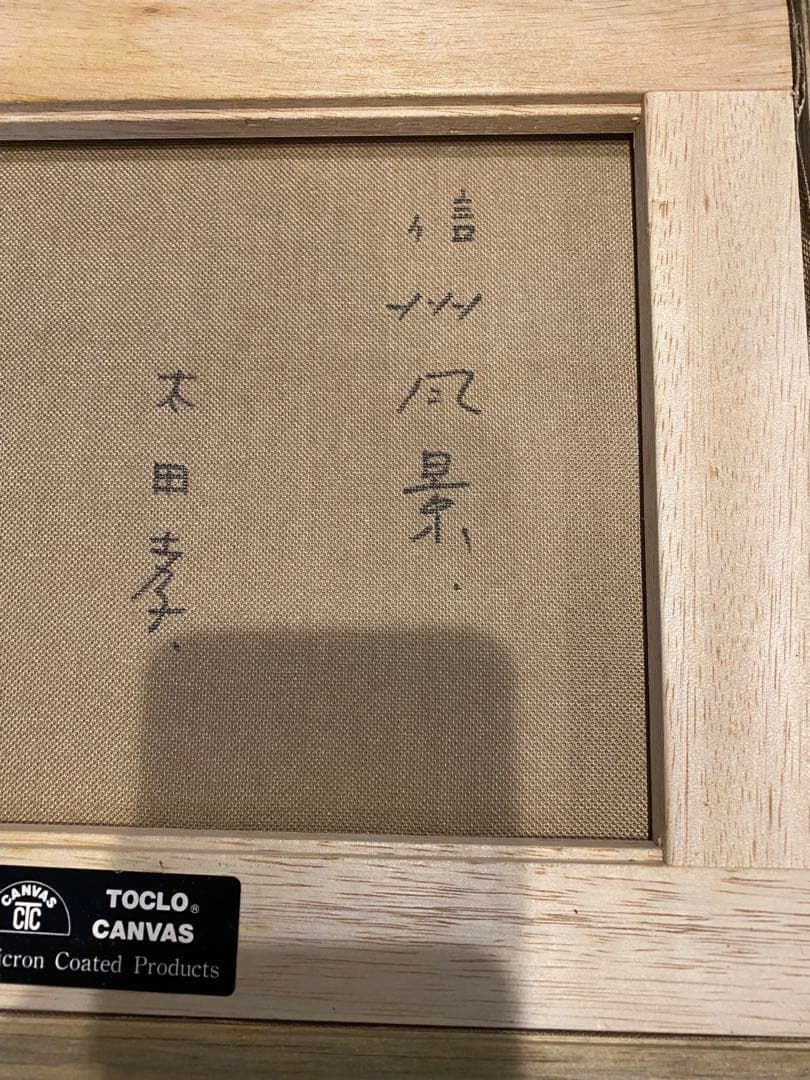 信州風景.
太田孝.
CANVAS
CTC
TOCLO®
CANVAS
icron Coated Products